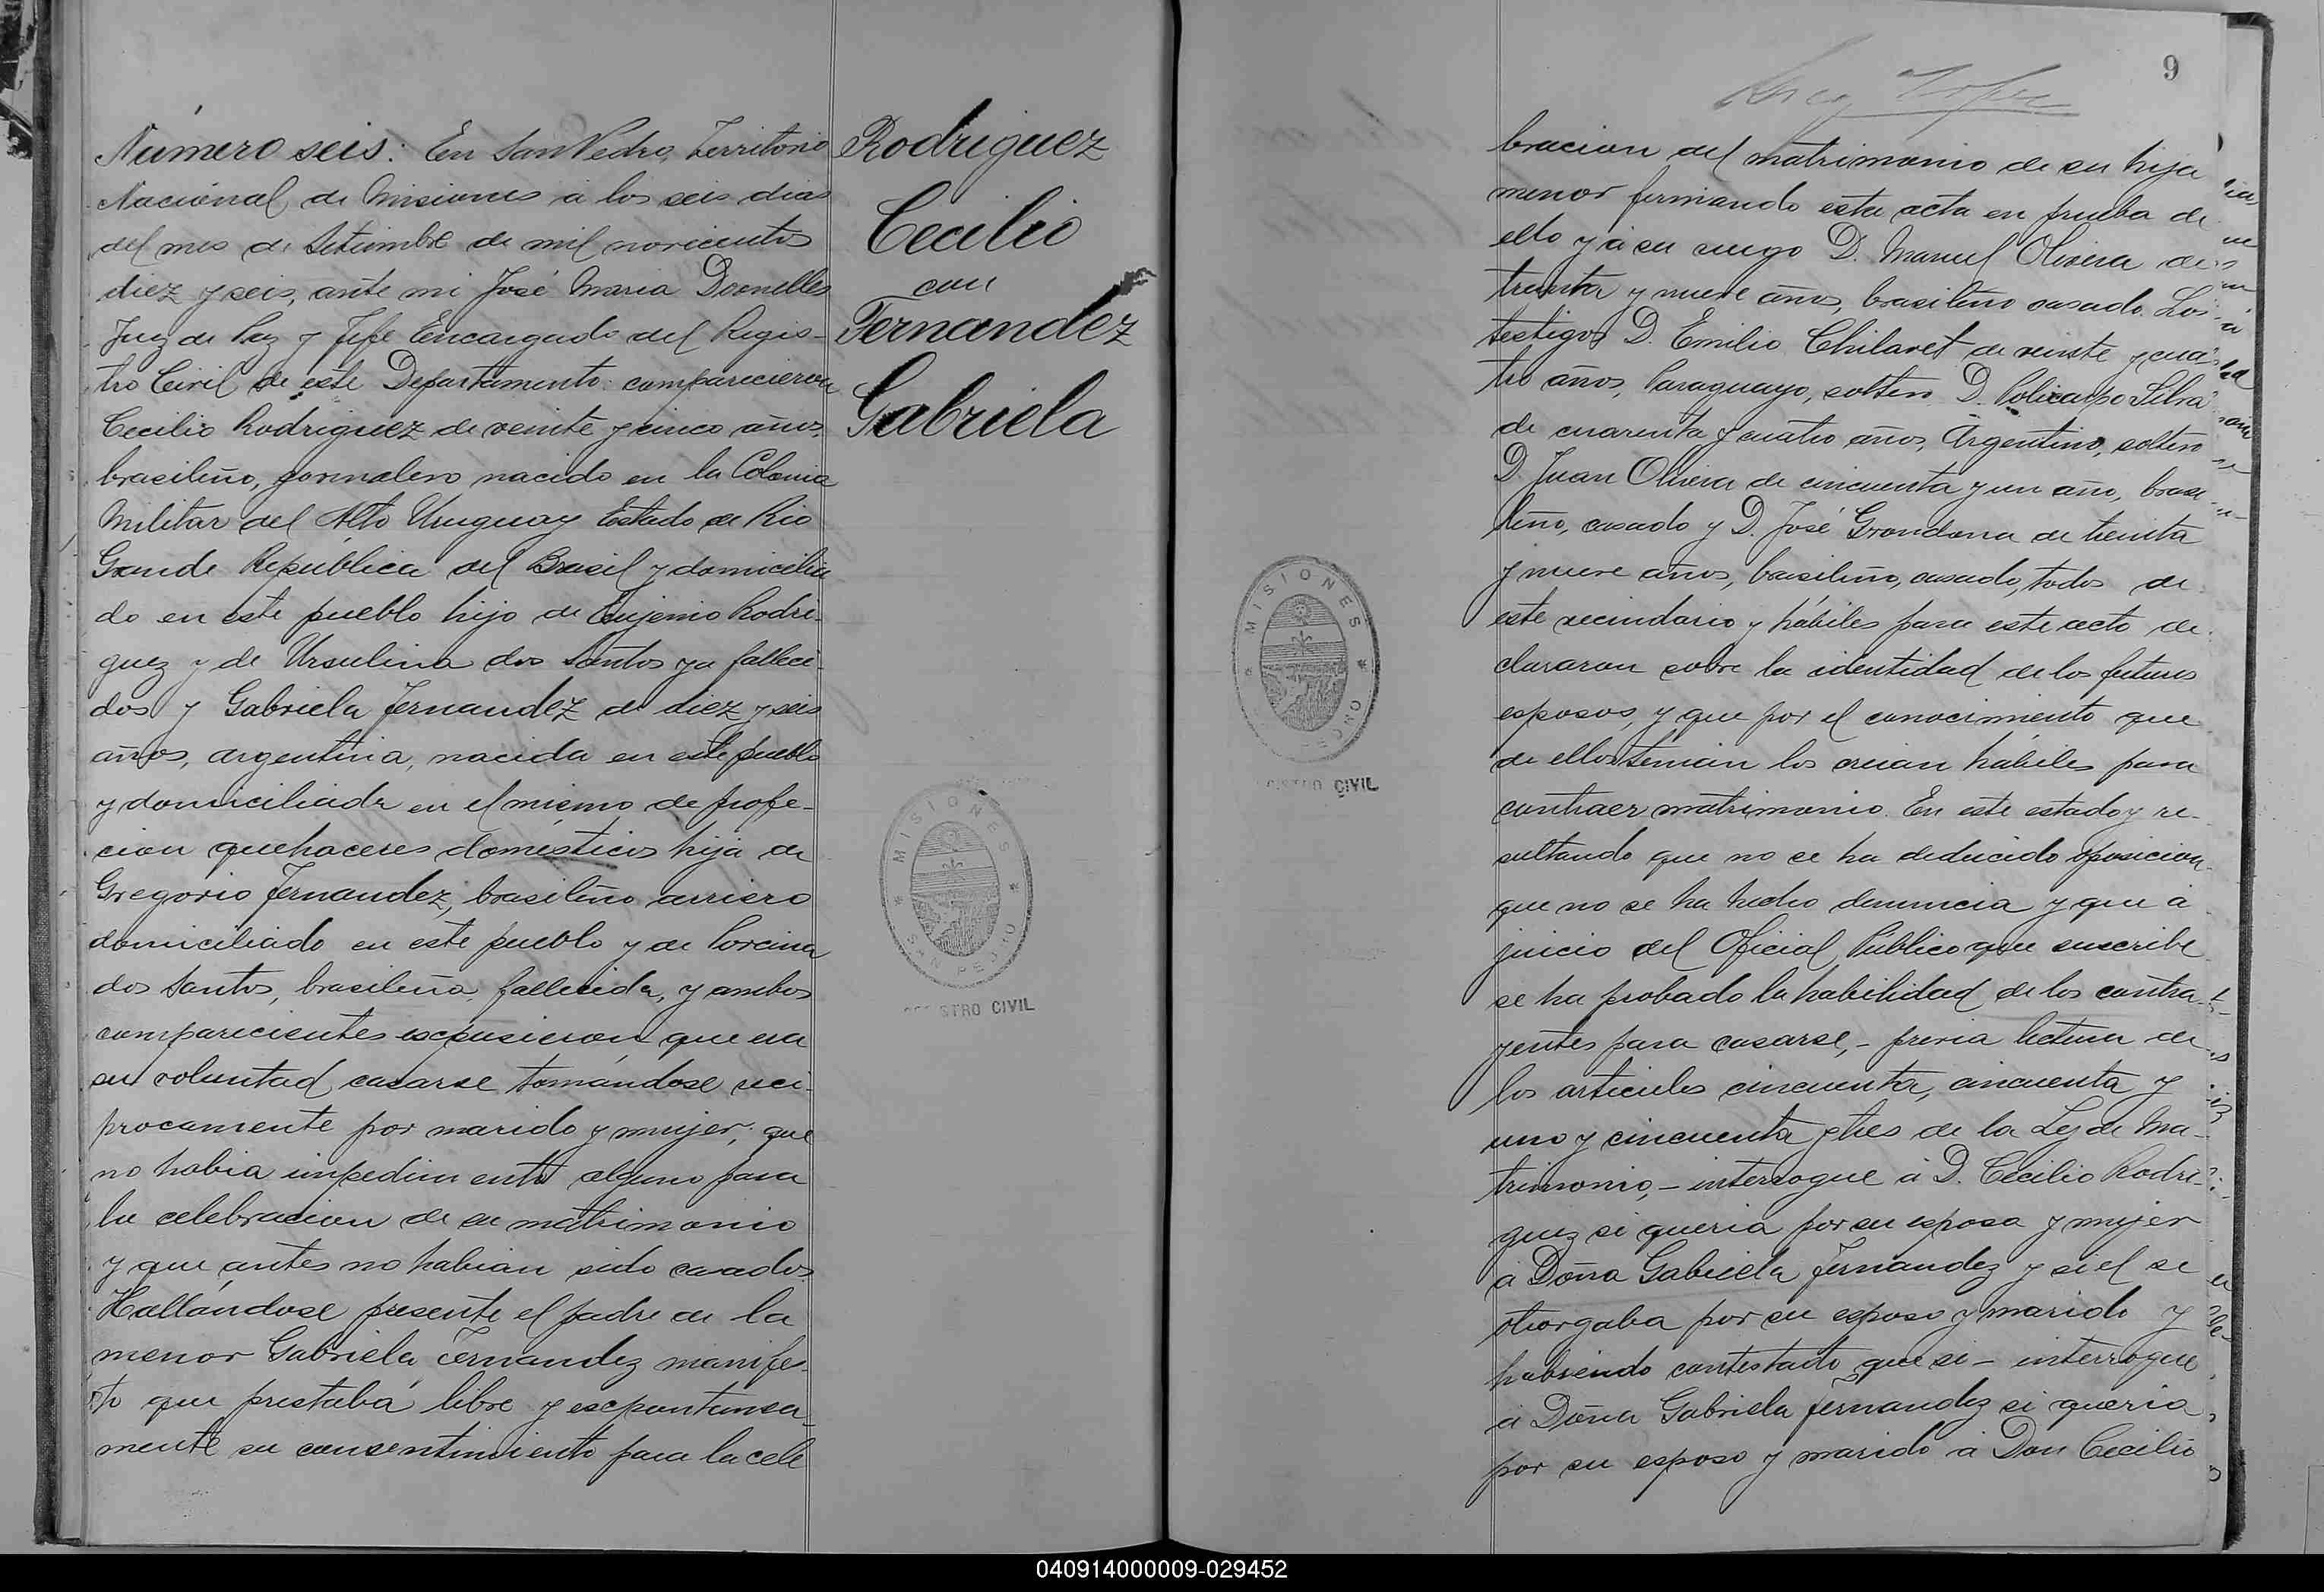 Número seis: En San Pedro, Territorio
Nacional de Misiones á los seis dias
del mes de Setiembre de mil novecientos
diez y seis, ante mi José Maria Dornelles
Juez de Paz y Jefe Encargado del Regis-
tro Civil de este Departamento: comparecieron
Cecilio Rodriguez de veinte y cinco años,
brasileño, jornalero nacido en la Colonia
Militar del Alto Uruguay Estado de Rio
Grande República del Brasil y domicilia
do en este pueblo hijo de Eujenio Rodri-
guez y de Ursulina dos Santos ya falleci-
dos y Gabriela Fernandez de diez y seis
años, argentina, nacida en este pueblo
y domiciliada en el mismo de profe-
cion quehaceres domésticos hija de
Gregorio Fernandez, brasileño arriero
domiciliado en este pueblo y de Porcina
dos Santos, brasileña, fallecida, y ambos
comparecientes escpusieron que era
su voluntad casarse tomándose reci-
procamente por marido y mujer; que
no habia impedimento alguno para
la celebracion de su matrimonio
y que antes no habian sido casados.
Hallándose presente el padre de la
menor Gabriela Fernandez manifes-
tó que prestaba libre y escpontanea-
mente su consentimiento para la cele
Rodriguez
Cecilio
con
Fernandez
Gabriela
MISIONES
SAN PEDRO
REGISTRO CIVIL
9
bracion del matrimonio de su hija
menor firmando esta acta en prueba de
ello y á su ruego D. Manuel Olivera de
treinta y nueve años, brasileño casado. Los
testigos D. Emilio Chilavet de veinte y cua-
tro años, Paraguayo, soltero D. Policarpo Silva
de cuarenta y cuatro años, Argentino, soltero
D. Juan Olivera de cincuenta y un año, brasi-
leño, casado y D. José Grondona de treinta
y nueve años, brasileño, casado, todos de
este vecindario y hábiles para este acto de
clararon sobre la identidad de los futuros
esposos, y que por el conocimiento que
de ellos tenian los creian hábiles para
contraer matrimonio. En este estado y re-
sultando que no se ha deducido oposicion
que no se ha hecho denuncia y que á
juicio del Oficial Público que suscribe
se ha probado la habilidad de los contra-
yentes para casarse, - previa lectura de
los articulos cincuenta, cincuenta y
uno y cincuenta y tres de la Ley de Ma-
trimonio, - interrogue á D. Cecilio Rodri-
guez si queria por su esposa y mujer
á Doña Gabriela Fernandez y si el se
otrorgaba por su esposo y marido y
habiendo contestado que si - interrogue
á Doña Gabriela Fernandez si queria
por su esposo y marido á Don Cecilio
MISIONES
REGISTRO CIVIL
040914000009-029452